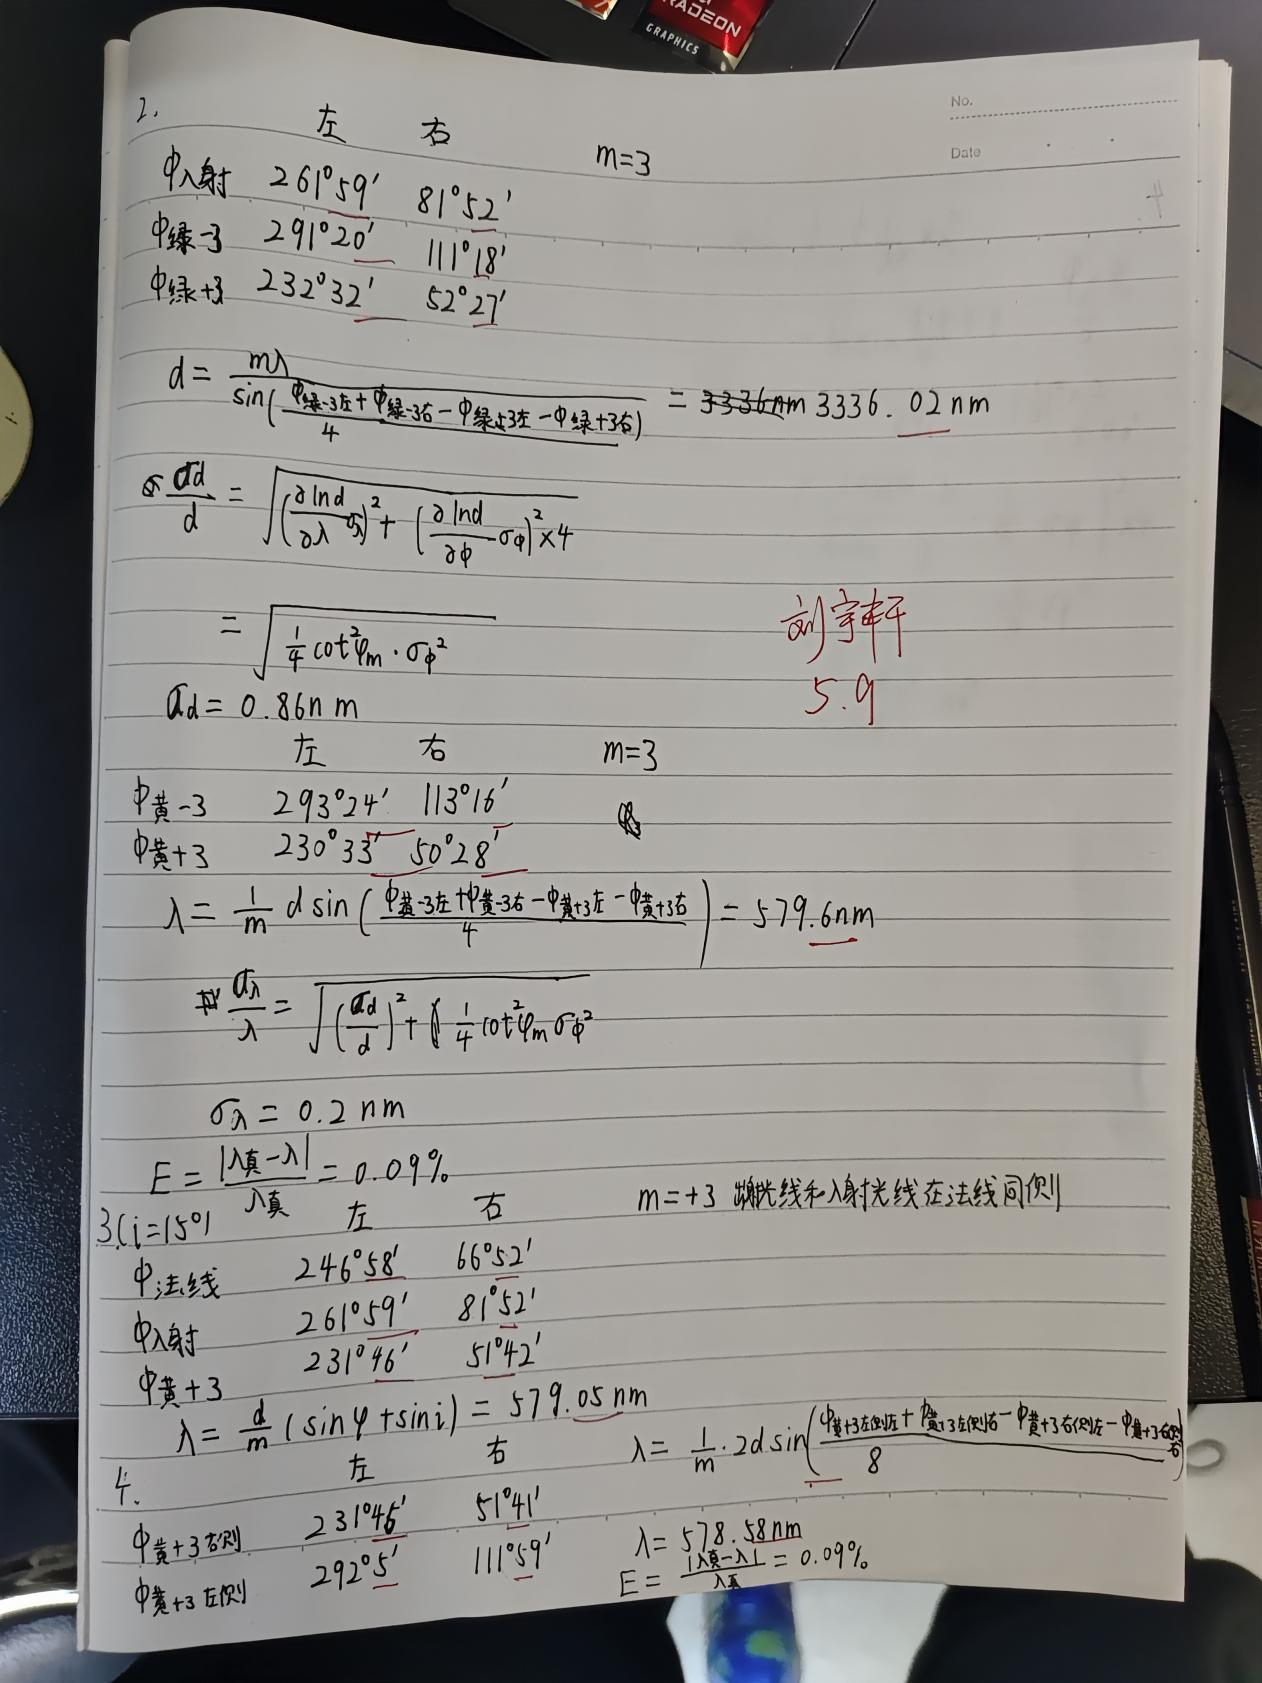 RADEON
GRAPHICS
No.
Date
2.
左 右 m=3
φ入射 261°59′ 81°52′
φ绿-3 291°20′ 111°18′
φ绿+3 232°32′ 52°27′
d = mλ / sin(φ绿-3左+φ绿-3右-φ绿+3左-φ绿+3右 / 4) = 3336nm 3336.02nm
σd/d = √((∂lnd/∂λ σλ)²+(∂lnd/∂φ σφ)²×4
= √(1/4 cot²φm·σφ²
σd = 0.86nm
刘宇轩
5.9
左 右 m=3
φ黄-3 293°24′ 113°16′
φ黄+3 230°33′ 50°28′
λ = 1/m d sin(φ黄-3左+φ黄-3右-φ黄+3左-φ黄+3右 / 4) = 579.6nm
σλ/λ = √((σd/d)²+ 1/4 cot²φm σφ²
σλ = 0.2nm
E = |λ真-λ|/λ真 = 0.09%
3.(i=15°) 左 右 m=+3 出射光线和入射光线在法线同侧
φ法线 246°58′ 66°52′
φ入射 261°59′ 81°52′
φ黄+3 231°46′ 51°42′
λ = d/m (sinφ+sini) = 579.05nm
4.
左 右
φ黄+3右侧 231°46′ 51°41′
φ黄+3左侧 292°5′ 111°59′
λ = 1/m·2d sin(φ黄+3左侧左+φ黄+3左侧右-φ黄+3右侧左-φ黄+3右侧右 / 8)
λ = 578.58nm
E = |λ真-λ|/λ真 = 0.09%